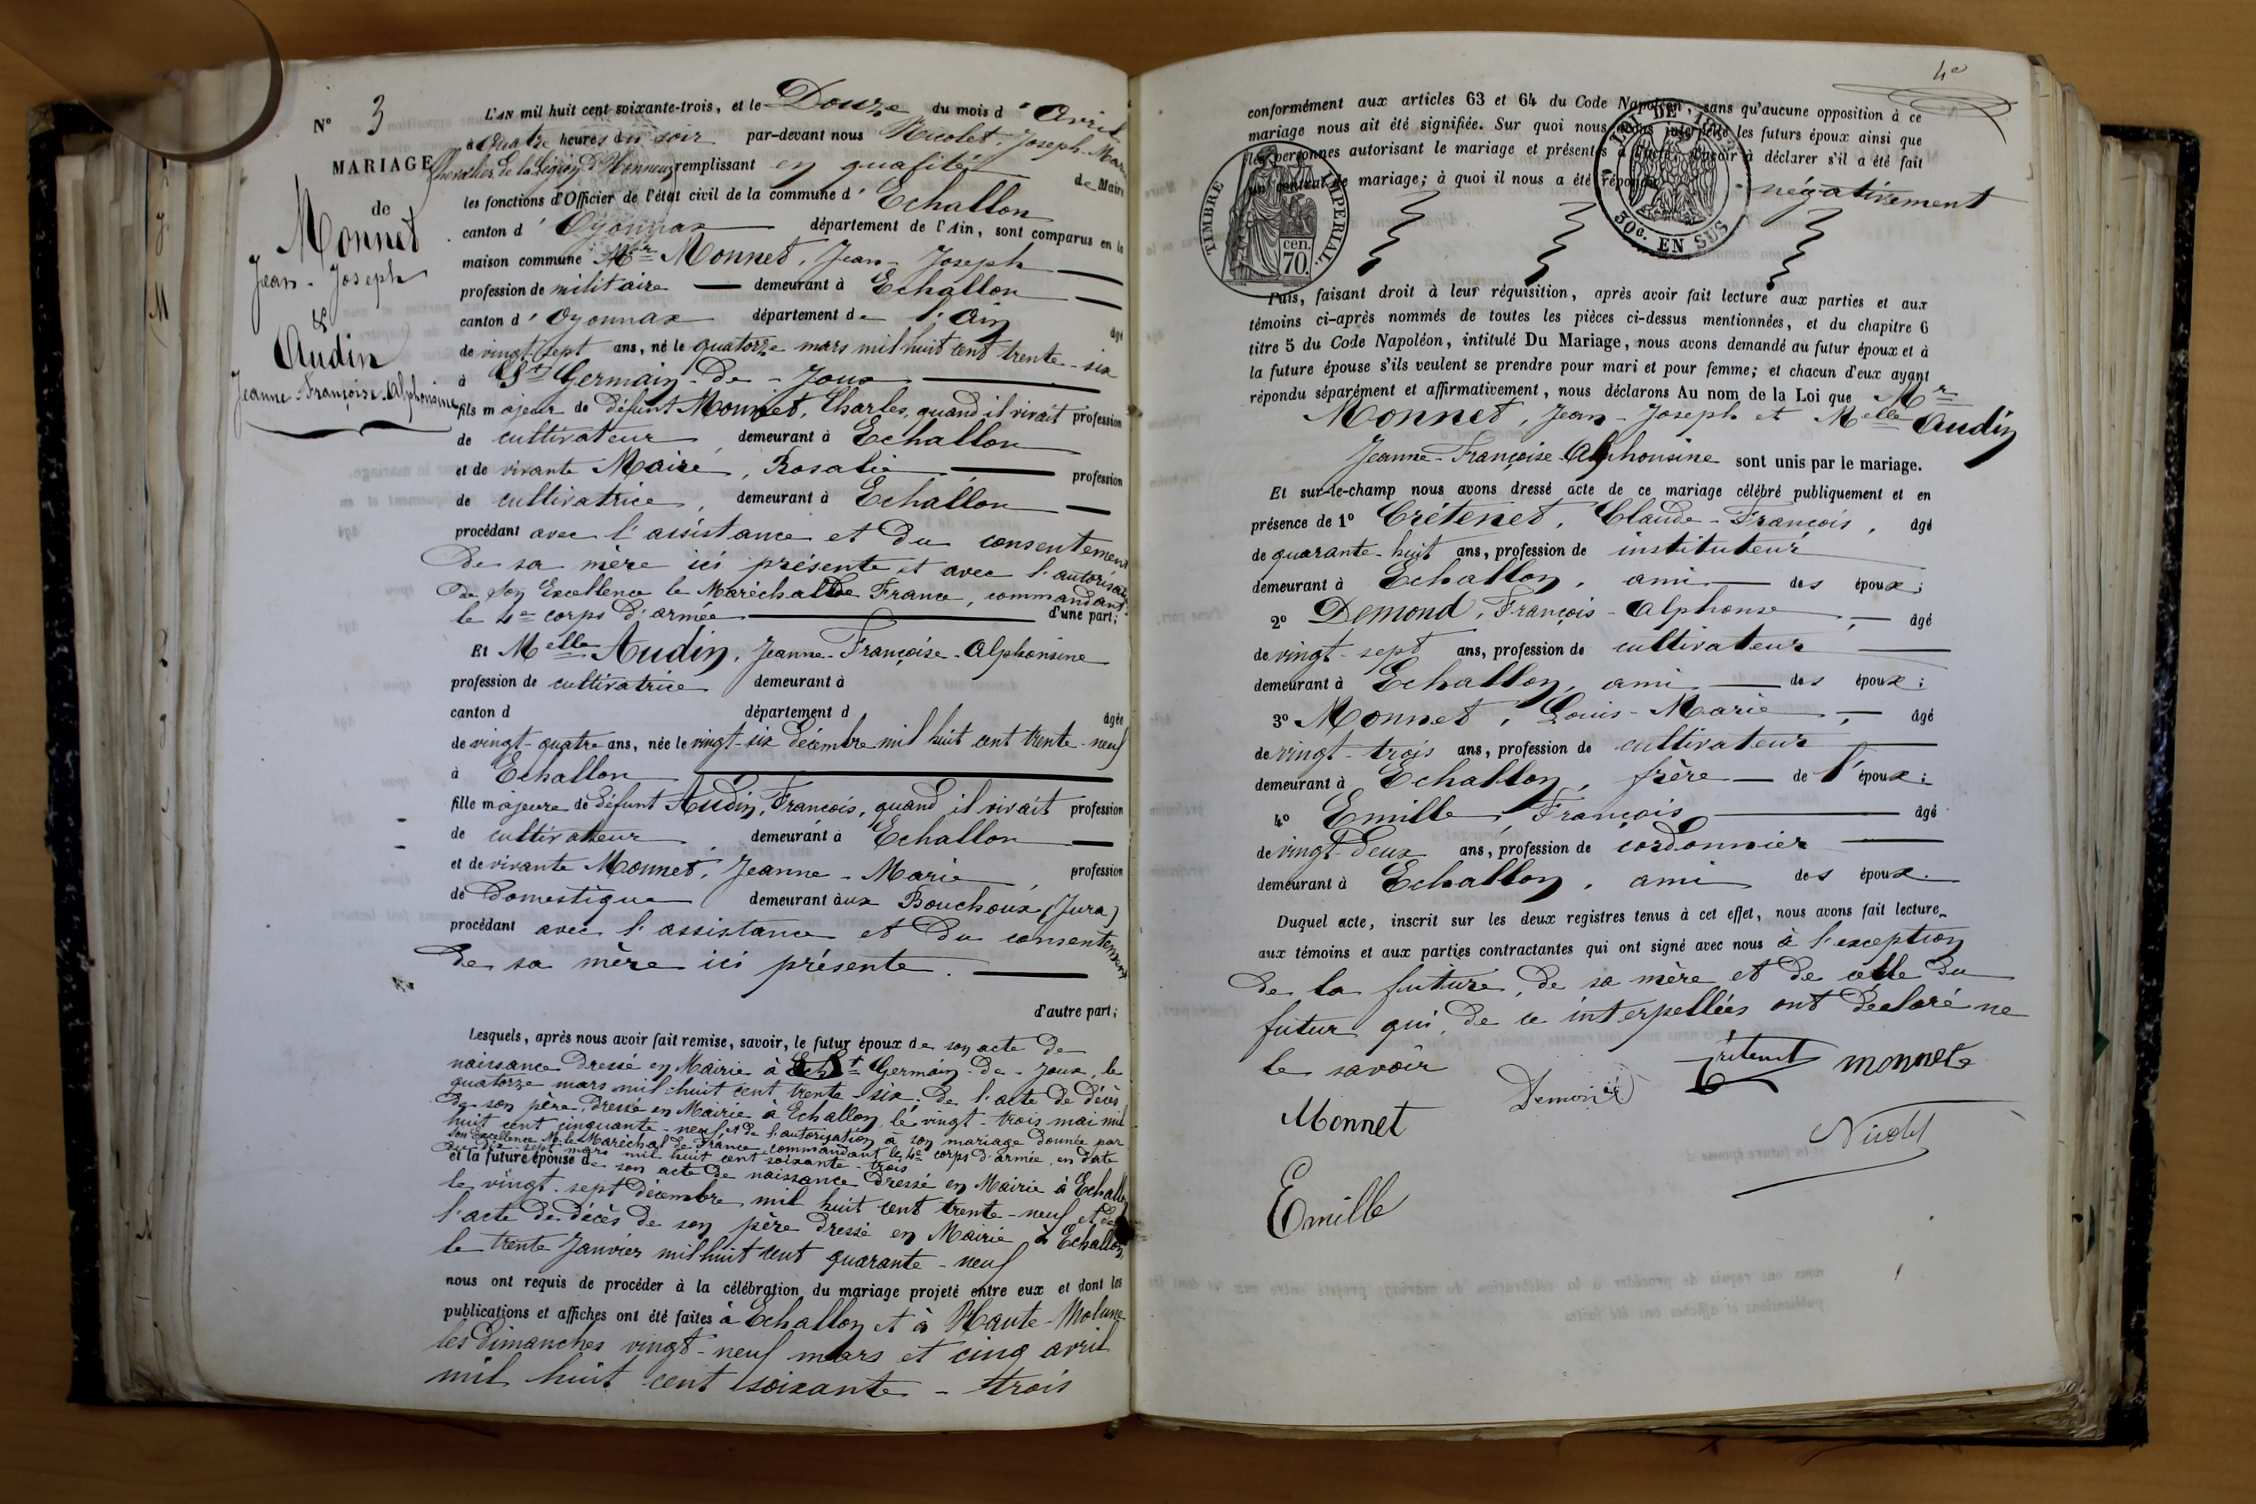 N° 3
MARIAGE
de
Monnet
Jean-Joseph
&
Audin
Jeanne-Françoise-Alphonsine
L'AN mil huit cent soixante-trois, et le Douze du mois d'Avril
à quatre heures du soir par-devant nous Nicolet, Joseph-Marie
Chevalier de la Légion d'Honneur remplissant en qualité de Maire
les fonctions d'Officier de l'état civil de la commune d'Echallon
canton d'Oyonnax département de l'Ain, sont comparus en la
maison commune Mr Monnet, Jean-Joseph
profession de militaire demeurant à Echallon
canton d'Oyonnax département de l'Ain âgé
de vingt-sept ans, né le quatorze mars mil huit cent trente-six
à St Germain-de-Joux
fils majeur de défunt Monnet, Charles, quand il vivait profession
de cultivateur demeurant à Echallon
et de vivante Mairé, Rosalie profession
de cultivatrice, demeurant à Echallon
procédant avec l'assistance et du consentement
de sa mère ici présente et avec l'autorisation
de Son Excellence le Maréchal de France, commandant
le 4e corps d'armée d'une part;
Et Melle Audin, Jeanne-Françoise-Alphonsine
profession de cultivatrice demeurant à
canton d département d âgée
de vingt-quatre ans, née le vingt-six décembre mil huit cent trente-neuf
à Echallon
fille majeure de défunt Audin, François, quand il vivait profession
de cultivateur, demeurant à Echallon
et de vivante Monnet, Jeanne-Marie, profession
de domestique demeurant aux Bouchoux (Jura)
procédant avec l'assistance et du consentement
de sa mère ici présente.
d'autre part;
Lesquels, après nous avoir fait remise, savoir, le futur époux de son acte de
naissance dressé en Mairie à St Germain-de-Joux, le
quatorze mars mil huit cent trente-six; de l'acte de décès
de son père, dressé en Mairie à Echallon, le vingt-trois mai mil
huit cent cinquante-neuf et de l'autorisation à son mariage donnée par
son Excellence M. le Maréchal de France commandant le 4e corps d'armée, en date
du dix-sept mars mil huit cent soixante-trois
et la future épouse de son acte de naissance dressé en Mairie à Echallon
le vingt-sept décembre mil huit cent trente-neuf et de
l'acte de décès de son père dressé en Mairie à Echallon
le trente Janvier mil huit cent quarante-neuf
nous ont requis de procéder à la célébration du mariage projeté entre eux et dont les
publications et affiches ont été faites à Echallon et à Haute-Molune
les dimanches vingt-neuf mars et cinq avril
mil huit cent soixante-trois
4e
conformément aux articles 63 et 64 du Code Napoléon, sans qu'aucune opposition à ce
mariage nous ait été signifiée. Sur quoi nous avons interpellé les futurs époux ainsi que
les personnes autorisant le mariage et présentes à l'acte, d'avoir à déclarer s'il a été fait
un contrat de mariage; à quoi il nous a été répondu négativement
TIMBRE IMPÉRIAL
cen.
70.
LOI DE
30c. EN SUS
Puis, faisant droit à leur réquisition, après avoir fait lecture aux parties et aux
témoins ci-après nommés de toutes les pièces ci-dessus mentionnées, et du chapitre 6
titre 5 du Code Napoléon, intitulé Du Mariage, nous avons demandé au futur époux et à
la future épouse s'ils veulent se prendre pour mari et pour femme; et chacun d'eux ayant
répondu séparément et affirmativement, nous déclarons Au nom de la Loi que Mr
Monnet, Jean-Joseph et Melle Audin
Jeanne-Françoise-Alphonsine sont unis par le mariage.
Et sur-le-champ nous avons dressé acte de ce mariage célébré publiquement et en
présence de 1° Crétenet, Claude-François, âgé
de quarante-huit ans, profession de instituteur
demeurant à Echallon, ami des époux;
2° Demond, François-Alphonse, âgé
de vingt-sept ans, profession de cultivateur
demeurant à Echallon, ami des époux;
3° Monnet, Louis-Marie, âgé
de vingt-trois ans, profession de cultivateur
demeurant à Echallon, frère de l'époux;
4° Emille, François âgé
de vingt-deux ans, profession de cordonnier
demeurant à Echallon, ami des époux.
Duquel acte, inscrit sur les deux registres tenus à cet effet, nous avons fait lecture
aux témoins et aux parties contractantes qui ont signé avec nous à l'exception
de la future, de sa mère et de celle du
futur qui, de ce interpellées ont déclaré ne
le savoir
Crétenet monnet
Demond
Monnet
Nicolet
Emille